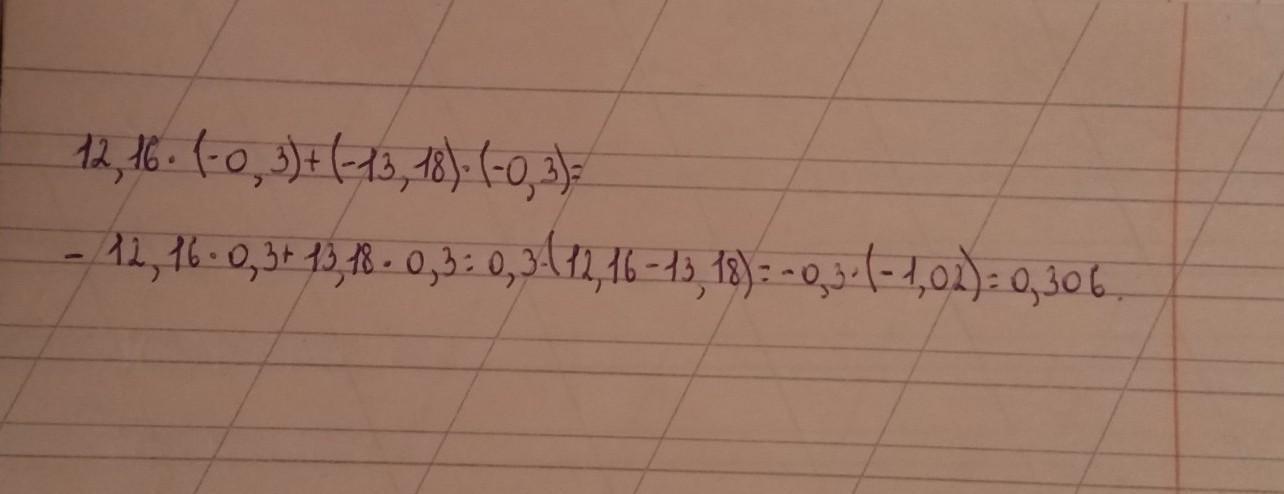 12,16·(-0,3)+(-13,18)·(-0,3)=
- 12,16·0,3+13,18·0,3=0,3·(12,16-13,18)=-0,3·(-1,02)=0,306.